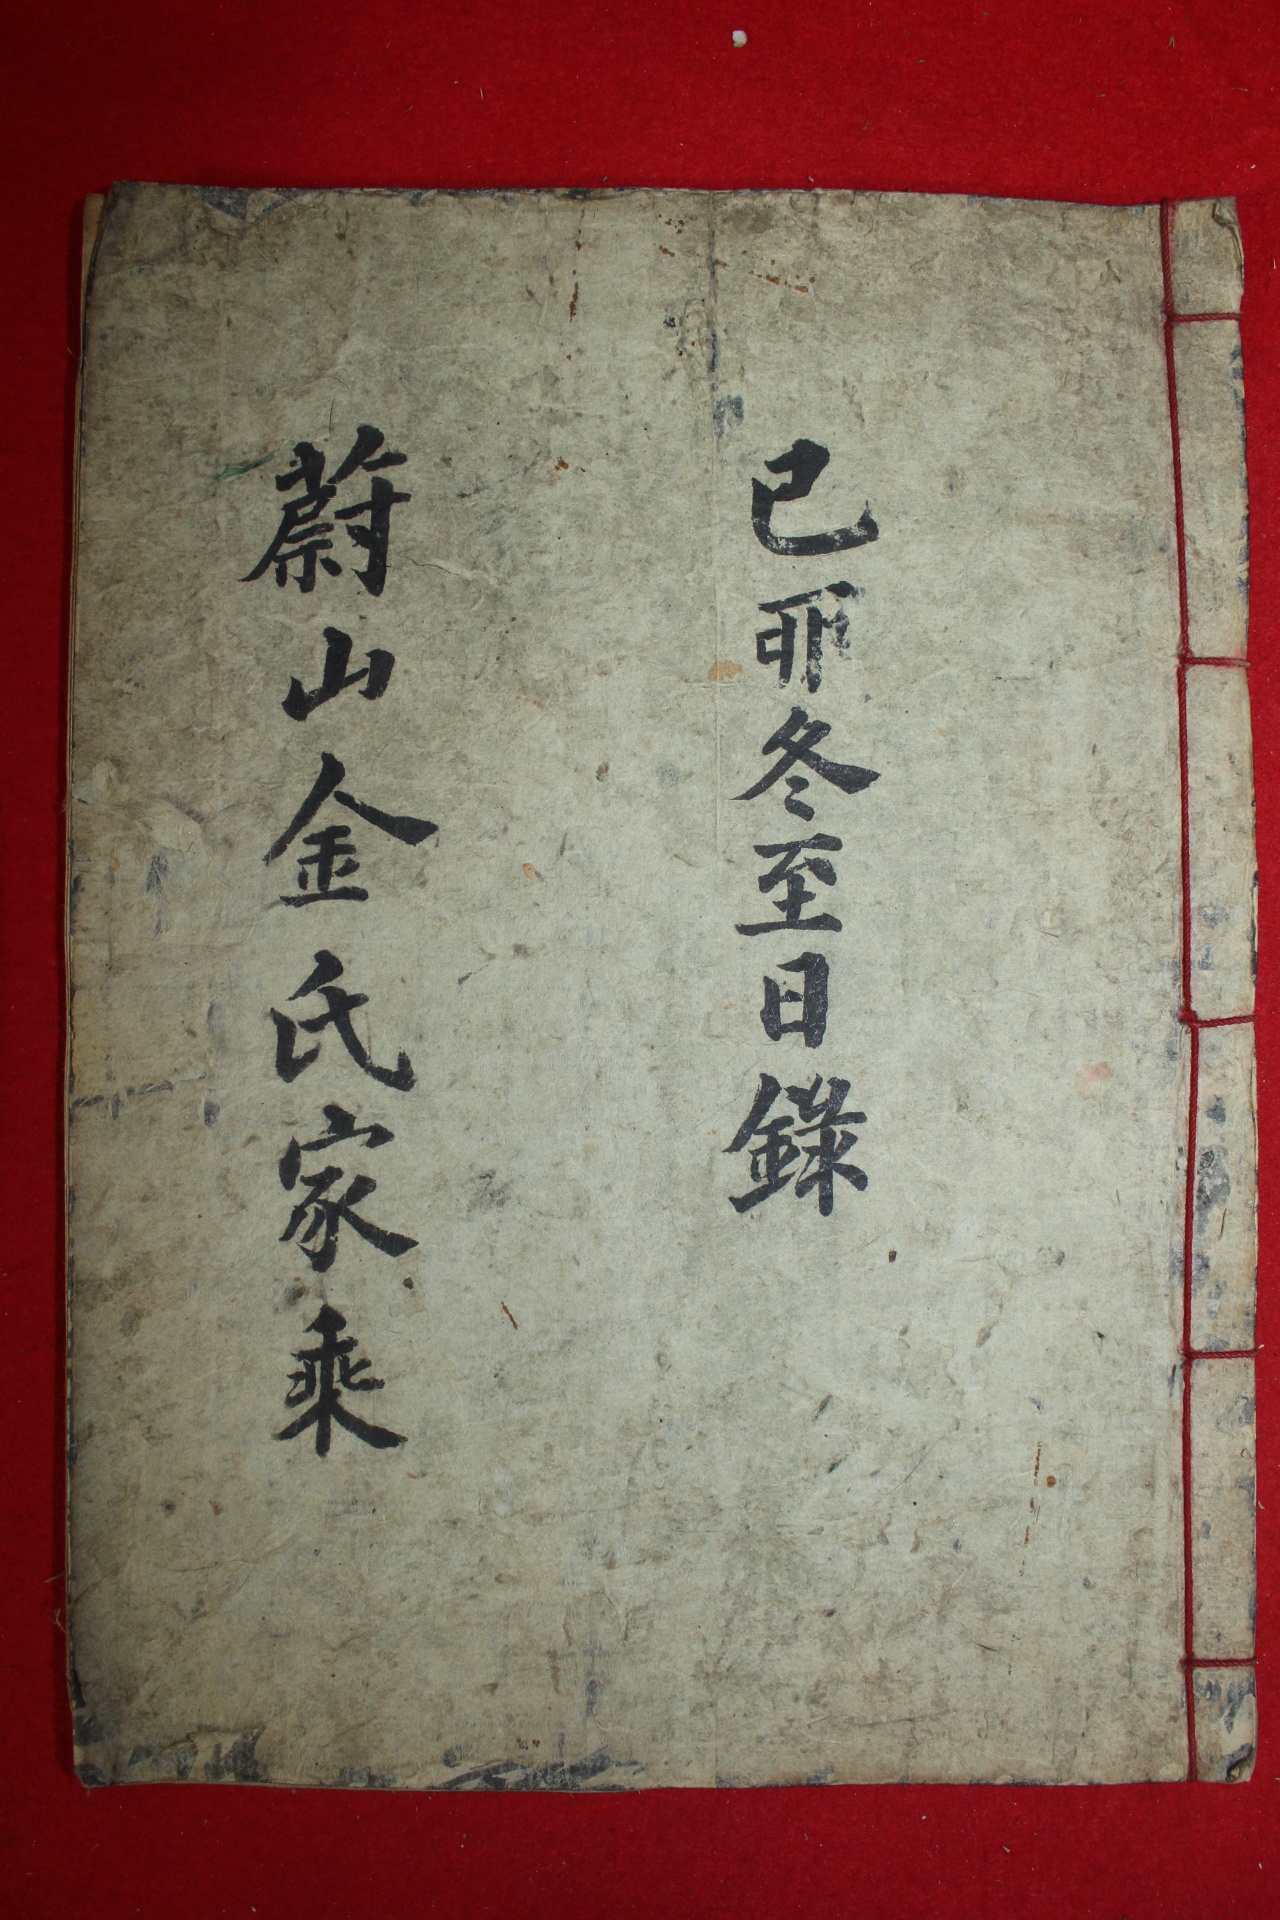 己丣冬至日錄
蔚山金氏家乘